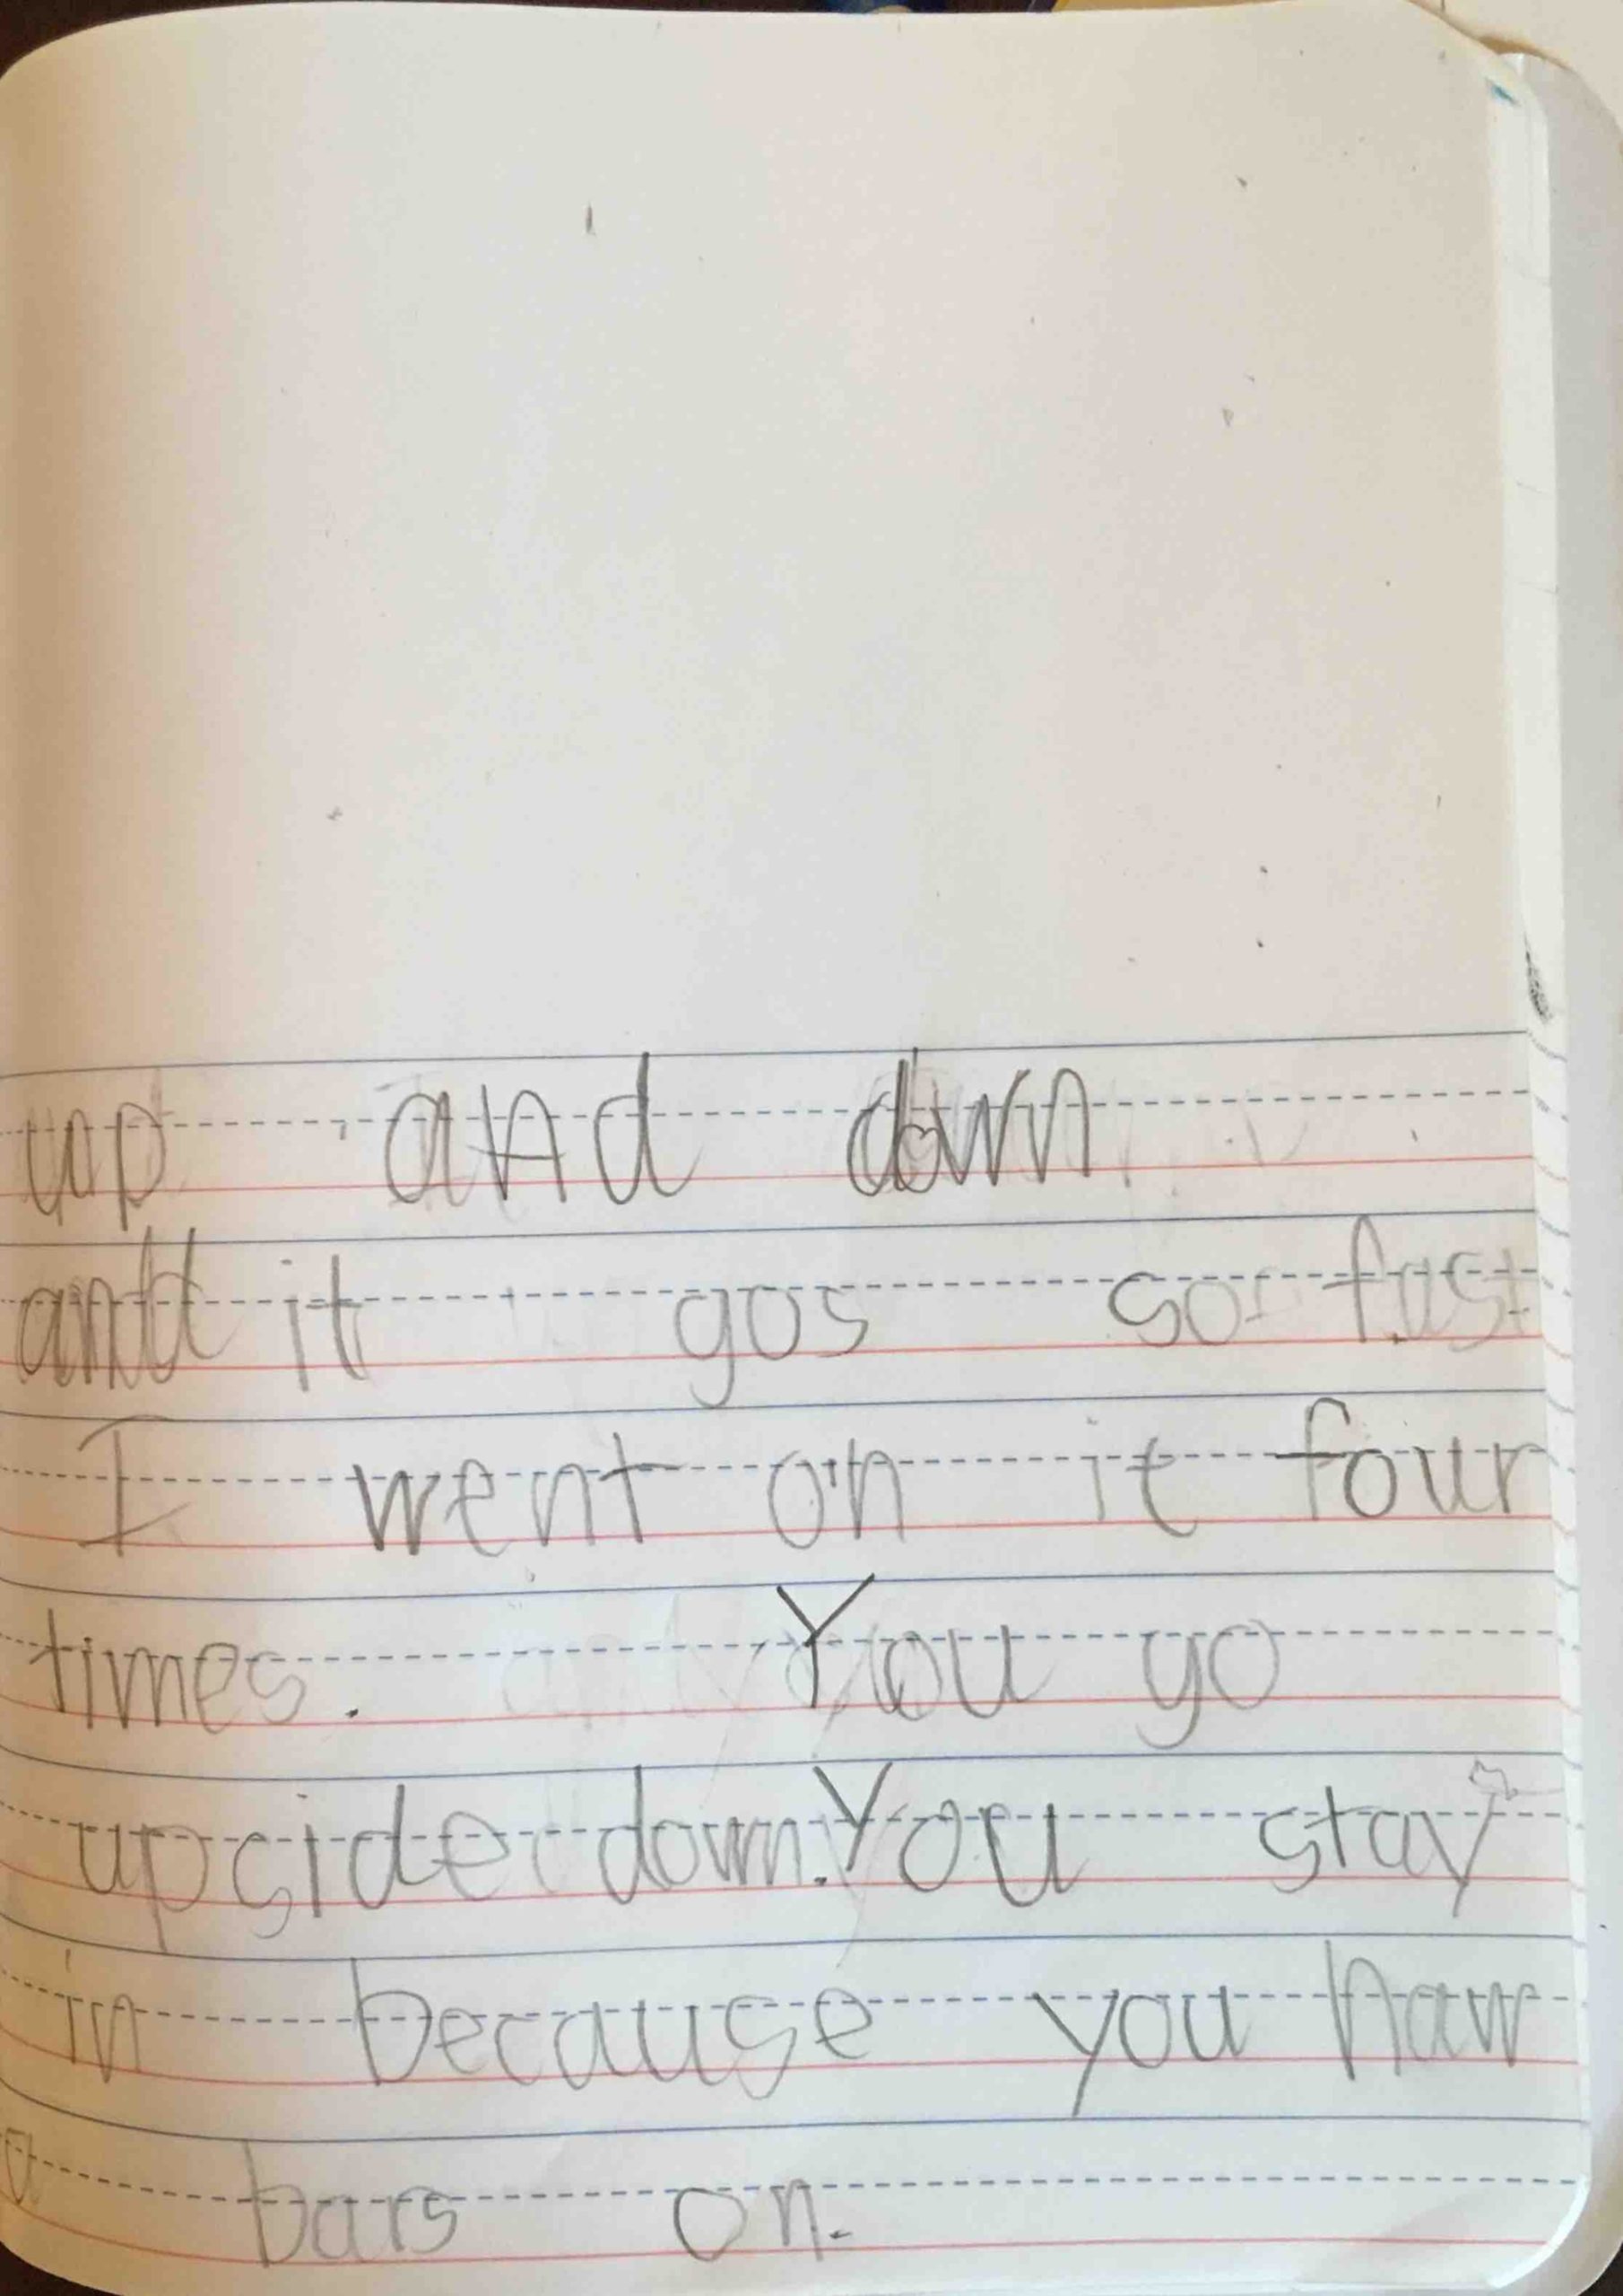 up and down
and it gos so fast
I went on it four
times. You go
upside down. You stay
in because you haw
a bars on.